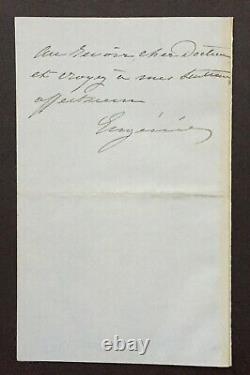 au revoir cher Docteur
et croyez à mes sentimens
affectueux
Eugénie